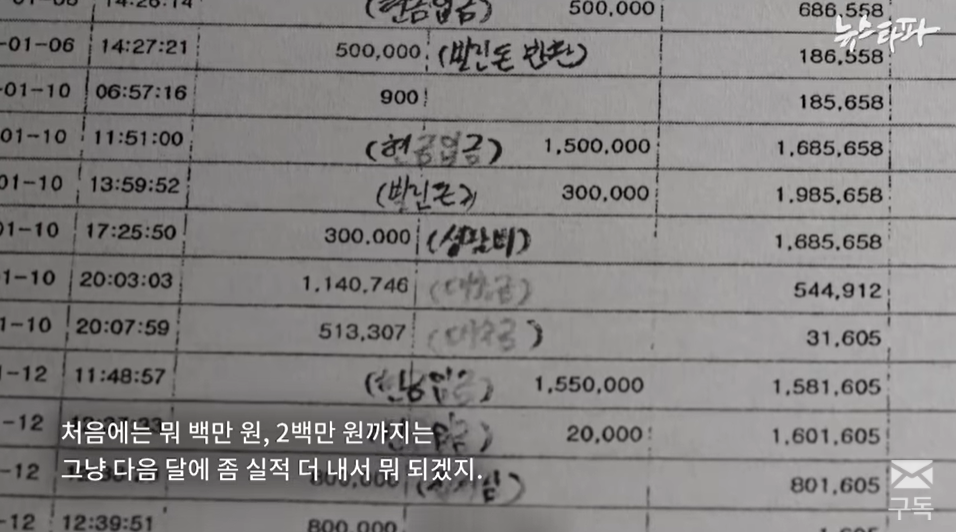 14:26:14 (현금입금) 500,000 686,558
뉴스타파
-01-06 14:27:21 500,000 (빌린돈 반환) 186,558
-01-10 06:57:16 900 185,658
01-10 11:51:00 (현금입금) 1,500,000 1,685,658
01-10 13:59:52 (빌린돈) 300,000 1,985,658
-01-10 17:25:50 300,000 1,685,658
01-10 20:03:03 1,140,746 (대출금) 544,912
1-10 20:07:59 513,307 (대출금) 31,605
1-12 11:48:57 (현금입금) 1,550,000 1,581,605
-12 20,000 1,601,605
처음에는 뭐 백만 원, 2백만 원까지는
그냥 다음 달에 좀 실적 더 내서 뭐 되겠지.
-12 801,605
구독
12 12:39:51 800,000